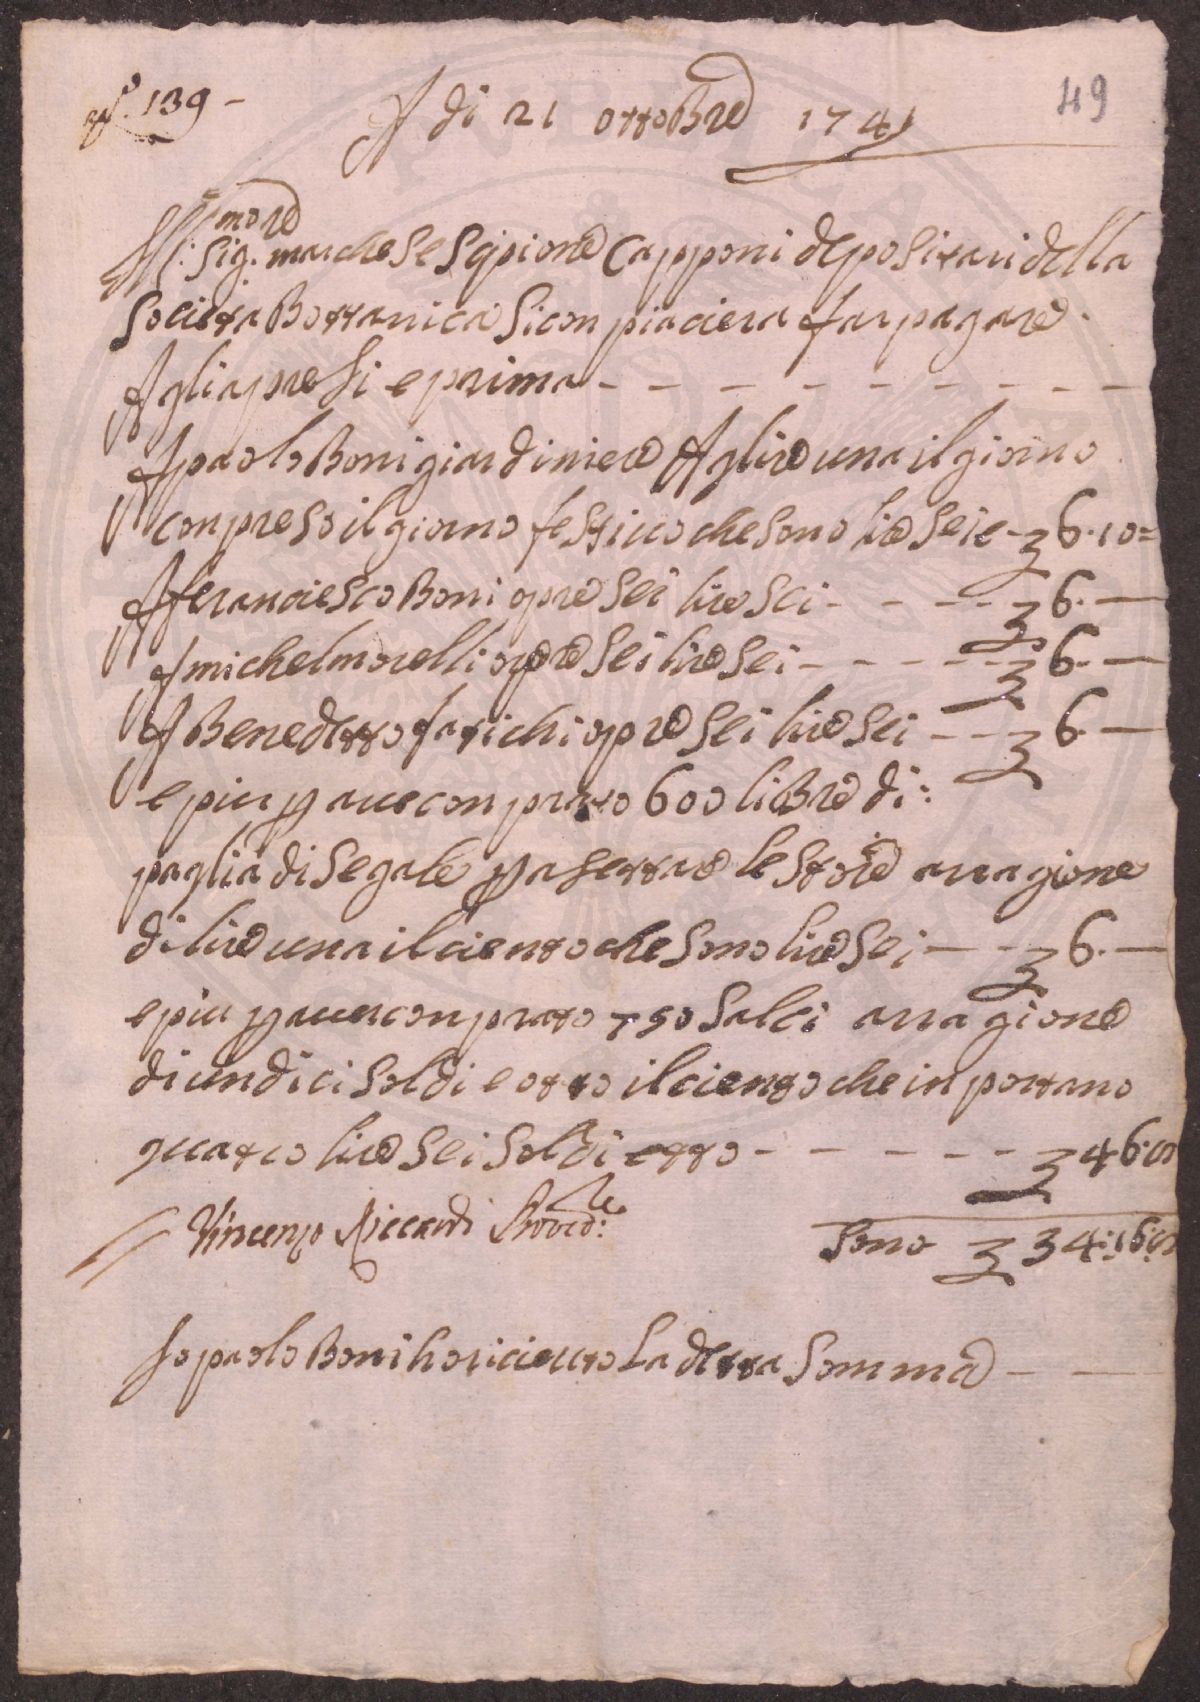 139 -
49
A di 21 ottobre 1741
Ill:mo re
Sig. marchese Scipione Capponi depositari della
Societa Bottanica Si conpiaciera far pagare
Agli apresi e prima - - - - - - - -
A paolo Boni giardiniere A lire una il giorno
conpreso il giorno festiuo che sono lire seie - 6.10=
A francesco Boni opre sei lire sei - - - - 6. —
A michel morelli opre sei lire sei - - - - - 6. —
A Benedetto fatichi opre sei lire sei - - - 6. —
e piu p auer conprato 600 libre di:
paglia di segale p asettare le stoie aragione
di lire una il ciento che sono lire sei - - 6. —
e piu p auer conprato 750 salci aragione
di undici soldi e otto il ciento che inportano
quatro lire sei soldi otto - - - - - - 4 6:8
Vincenzo Riccardi Proved:re
Sono 34:16:8
Io paolo Boni ho riceuto La detta Somma — —